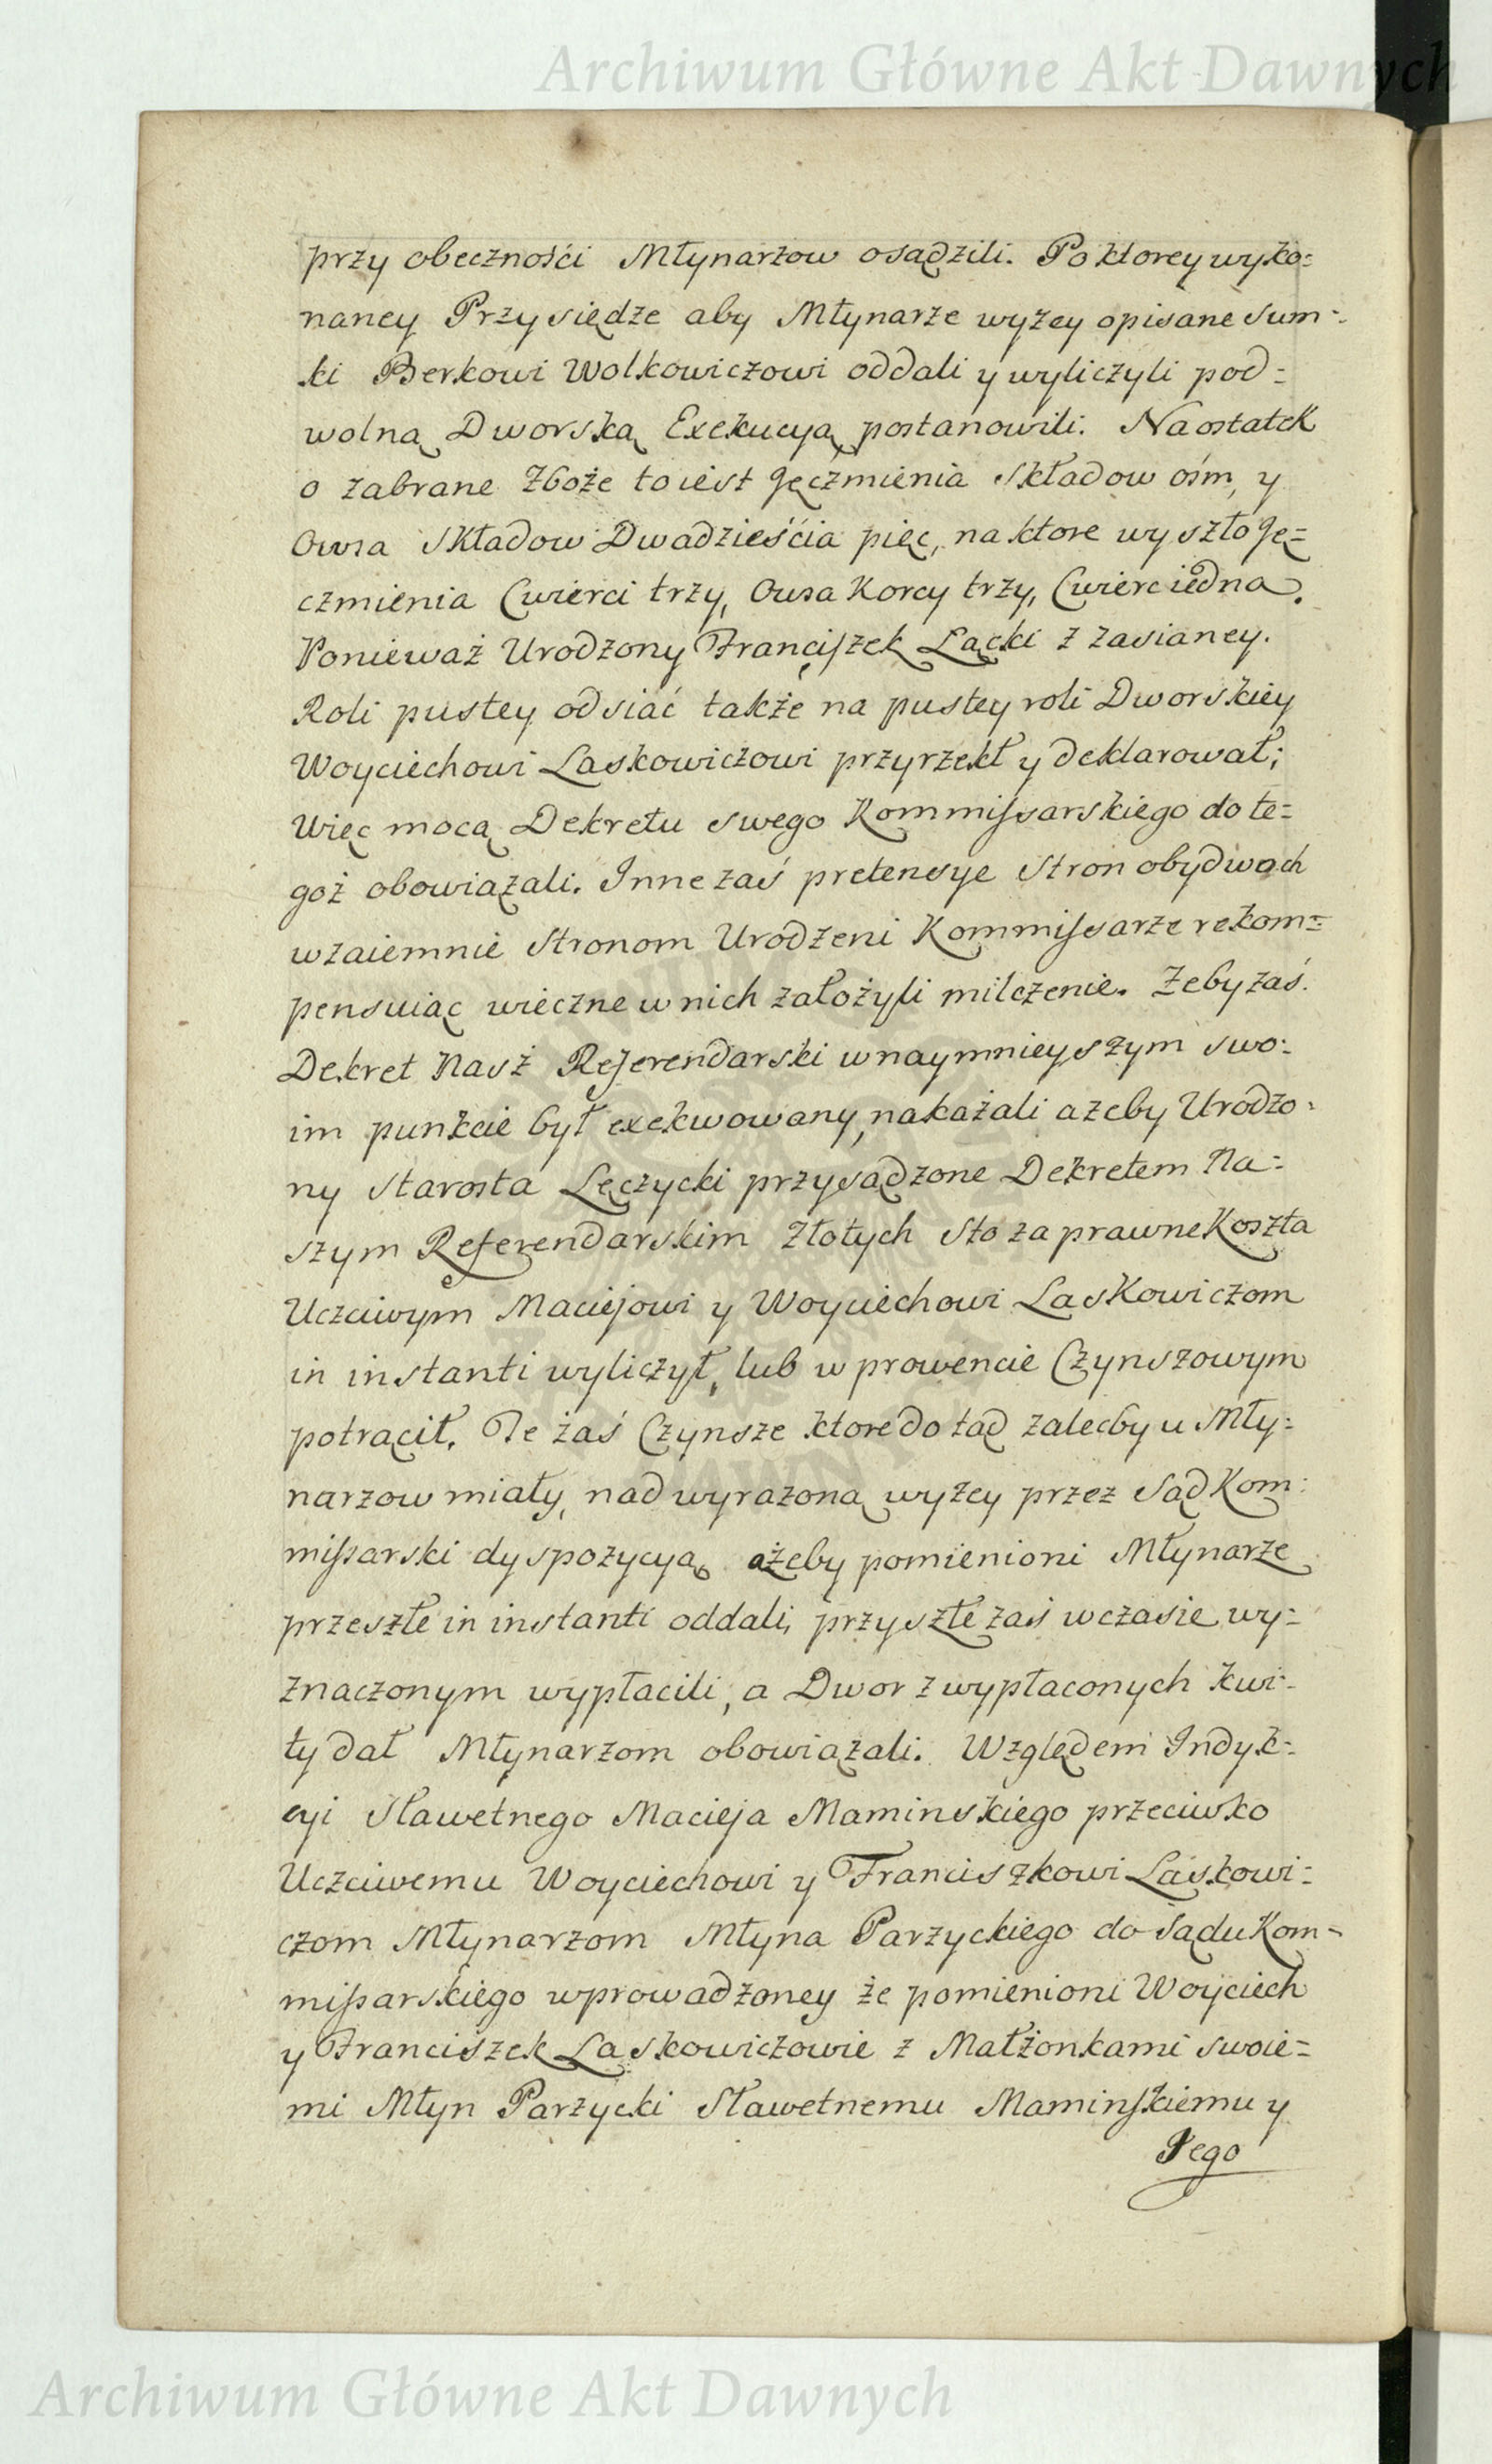 Archiwum Główne Akt Dawnych
przy obecznośći Młynarzow osądzili. Po ktorey wyko=
naney Przysiędze aby Młynarze wyżey opisane Sum=
ki Berkowi Wolkowiczowi oddali y wyliczyli pod=
wolną Dworską Exekucyą postanowili. Na ostatek
o zabrane Zboże to iest Jęczmienia Składow ośm, y
Owsa Składow Dwadzieśćia pięc, na ktore wyszło Ję=
czmienia Cwierci trzy, Owsa Korcy trzy, Cwierc iedna.
Ponieważ Urodzony Franciszek Lącki z zasianey.
Roli pustey odsiać także na pustey roli Dworskiey
Woyciechowi Laskowiczowi przyrzekł y deklarował;
Więc mocą Dekretu swego Kommissarskiego do te=
goż obowiązali. Inne zaś pretensye Stron obydwoch
wzaiemnie Stronom Urodzeni Kommissarze rekom=
pensuiąc wieczne w nich założyli milczenie. Żeby zaś.
Dekret Nasz Referendarski w naymnieyszym swo=
im punkcie był exekwowany, nakazali ażeby Urodzo=
ny Starosta Lęczycki przysądzone Dekretem Na=
szym Referendarskim Złotych Sto za prawne Koszta
Uczciwym Maciejowi y Woyciechowi Laskowiczom
in instanti wyliczył, lub w prowencie Czynszowym
potrącił. Te zaś Czynsze ktore do tąd zalecby u Mły=
narzow miały, nad wyrażoną wyżey przez Sąd Kom=
missarski dyspozycyą, ażeby pomienioni Młynarze
przeszłe in instanti oddali, przyszłe zaś w czasie wy=
znaczonym wypłacili, a Dwor z wypłaconych kwi=
ty dał Młynarzom obowiązali. Względem Indyk=
cyi Sławetnego Macieja Maminskiego przeciwko
Uczciwemu Woyciechowi y Franciszkowi Laskowi=
czom Młynarzom Młyna Parzyckiego do Sądu Kom=
missarskiego wprowadzoney że pomienioni Woyciech
y Franciszek Laskowiczowie z Małżonkami swoie=
mi Młyn Parzycki Sławetnemu Maminskiemu y
Jego
Archiwum Główne Akt Dawnych